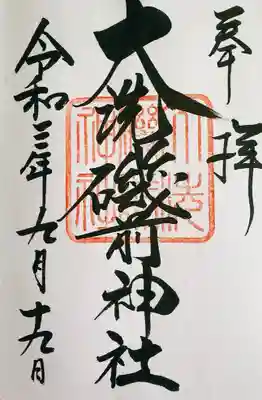 奉拝
大洗磯前神社
令和三年九月十九日